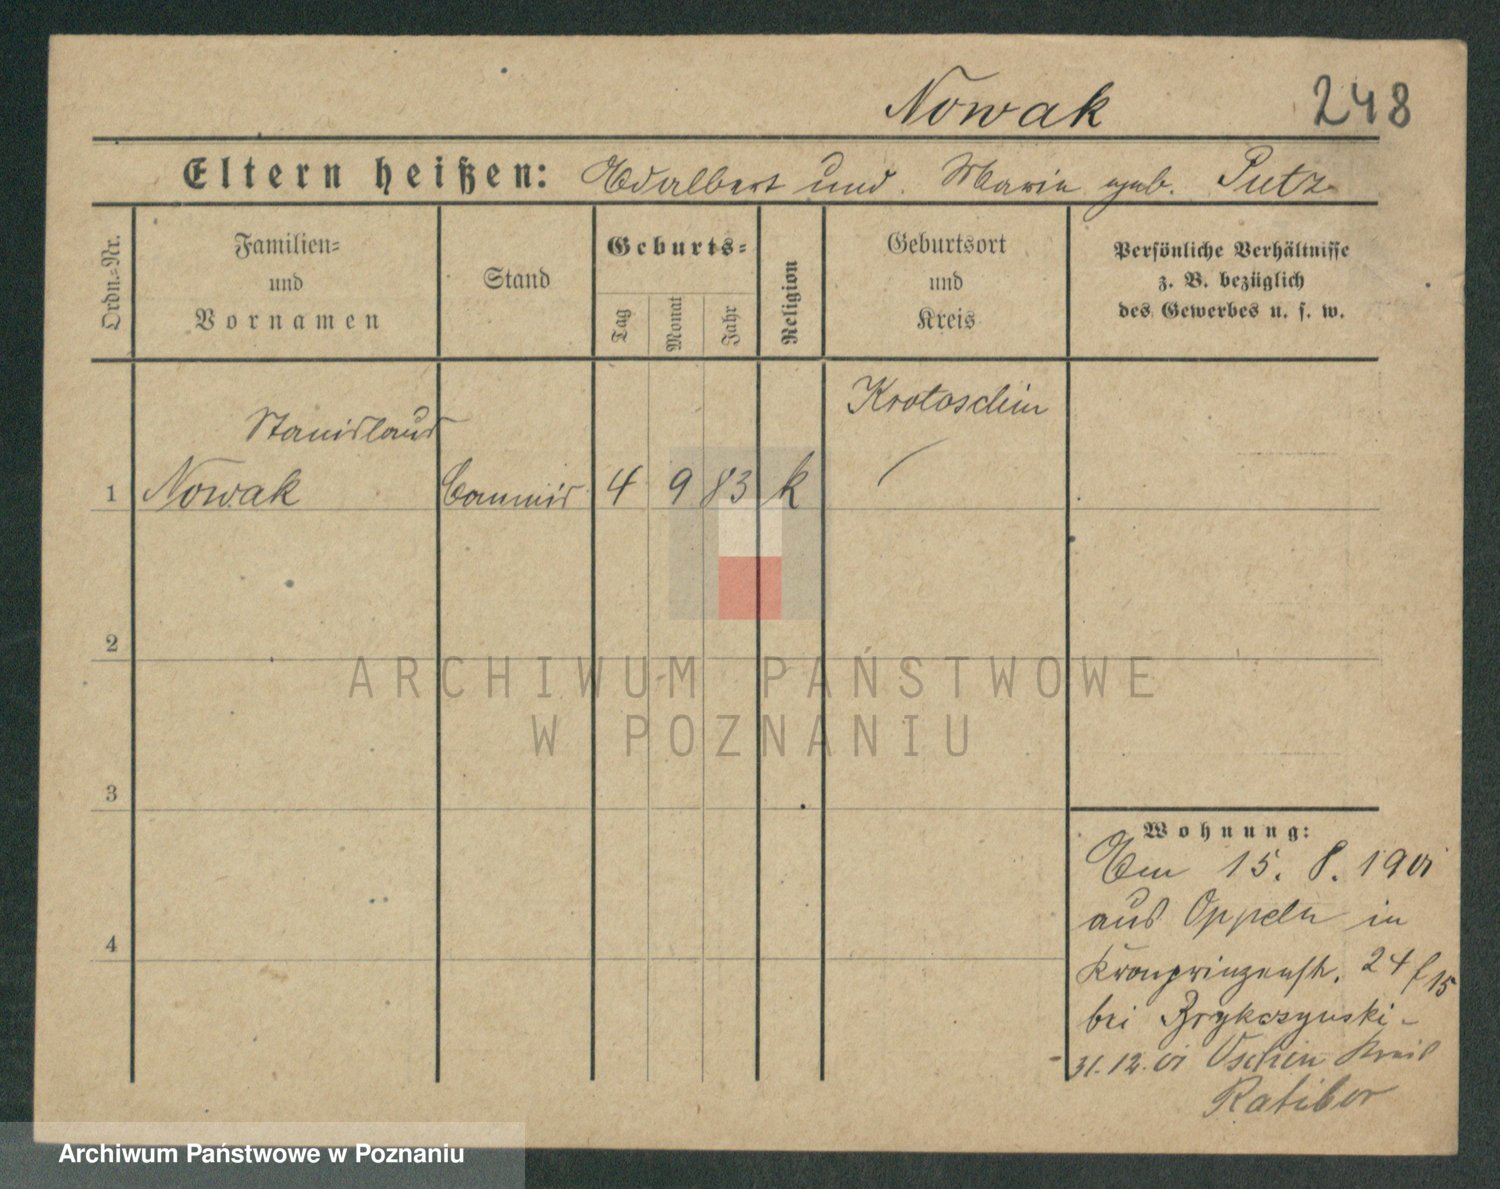 Nowak 248
Eltern heißen: Adalbert und Maria geb. Putz
Ordn.=Nr.
Familien=
und
Vornamen
Stand
Geburts=
Tag
Monat
Jahr
Religion
Geburtsort
und
Kreis
Persönliche Verhältnisse
z. B. bezüglich
des Gewerbes u. s. w.
Stanislaus
Krotoschin
1 Nowak Commis 4 9 83 k
2
3
4
ARCHIWUM PAŃSTWOWE
W POZNANIU
Wohnung:
Am 15. 8. 1901
aus Oppeln in
Kronprinzenstr. 24 f 15
bei
31.12.01 Kreis
Ratibor
Archiwum Państwowe w Poznaniu